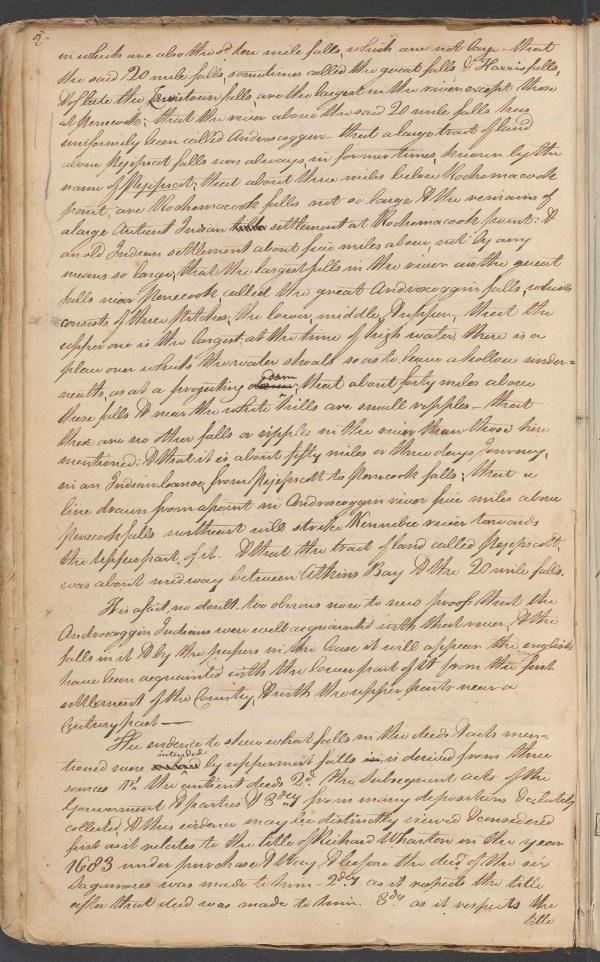 in which are also the sd. three mile falls, which are not large – that
the said 20 mile falls, sometimes called the great falls & Harris falls,
& of late the Lewistown falls, are the largest in the river except those
at Penecook; that the river above the said 20 mile falls has
uniformly been called Androscoggen – that a large tract of land
above Pejepscot falls was always, in former times, known by the
name of Pejepscot; that about three miles below Rockomacook
point, are Rockomacook falls not so large & the remains of
a large Antient Indian settlement at Rockomacook point: &
an old Indian settlement about five miles above, not by any
means so large, that the largest falls in the river are the great
falls near Penecook, called the great Androscoggin falls, which
consists of three Pitches, the lower, middle, & upper, that the
upper one is the largest; at the time of high water there is a
place over which the water should so as to leave a hollow under=
neath, as at a projecting dam; that about forty miles above
these falls & near the white hills are small ripples – that
there are no other falls or ripples in the river than those here
mentioned; & that it is about fifty miles or three days Journey,
in an Indian Canoe, from Pejepscott to Penecook falls; that a
line drawn from a point in Androscoggin river five miles above
Penecook falls northeast will strike Kennebec river towards
the Upper part of it – & that the tract of land called Pejepscott,
was about midway between Atkins Bay & the 20 mile falls.
It is a fact, no doubt, too obvious now to need proof, that the
Androscoggin Indians were well acquainted with that river, & the
falls in it & by the papers in the Case it will appear the english
have been acquainted with the lower part of it from the first
settlement of the Country, & with the upper parts near a
Century past —
The evidence to shew what falls in the deeds & acts men-
tioned were intended by uppermost falls is derived from three
sources 1st. the antient deeds 2d. the subsequent acts of the
Government & parties & 3dly from many depositions &
collected, & this evidence may be distinctly viewed & considered
first as it relates to the title of Richard Wharton in the year
1683 under purchase & Way, & before the deed of the six
Sagamores was made to him – 2dly as it respects the title
after that deed was made to him. 3dly as it respects the
title